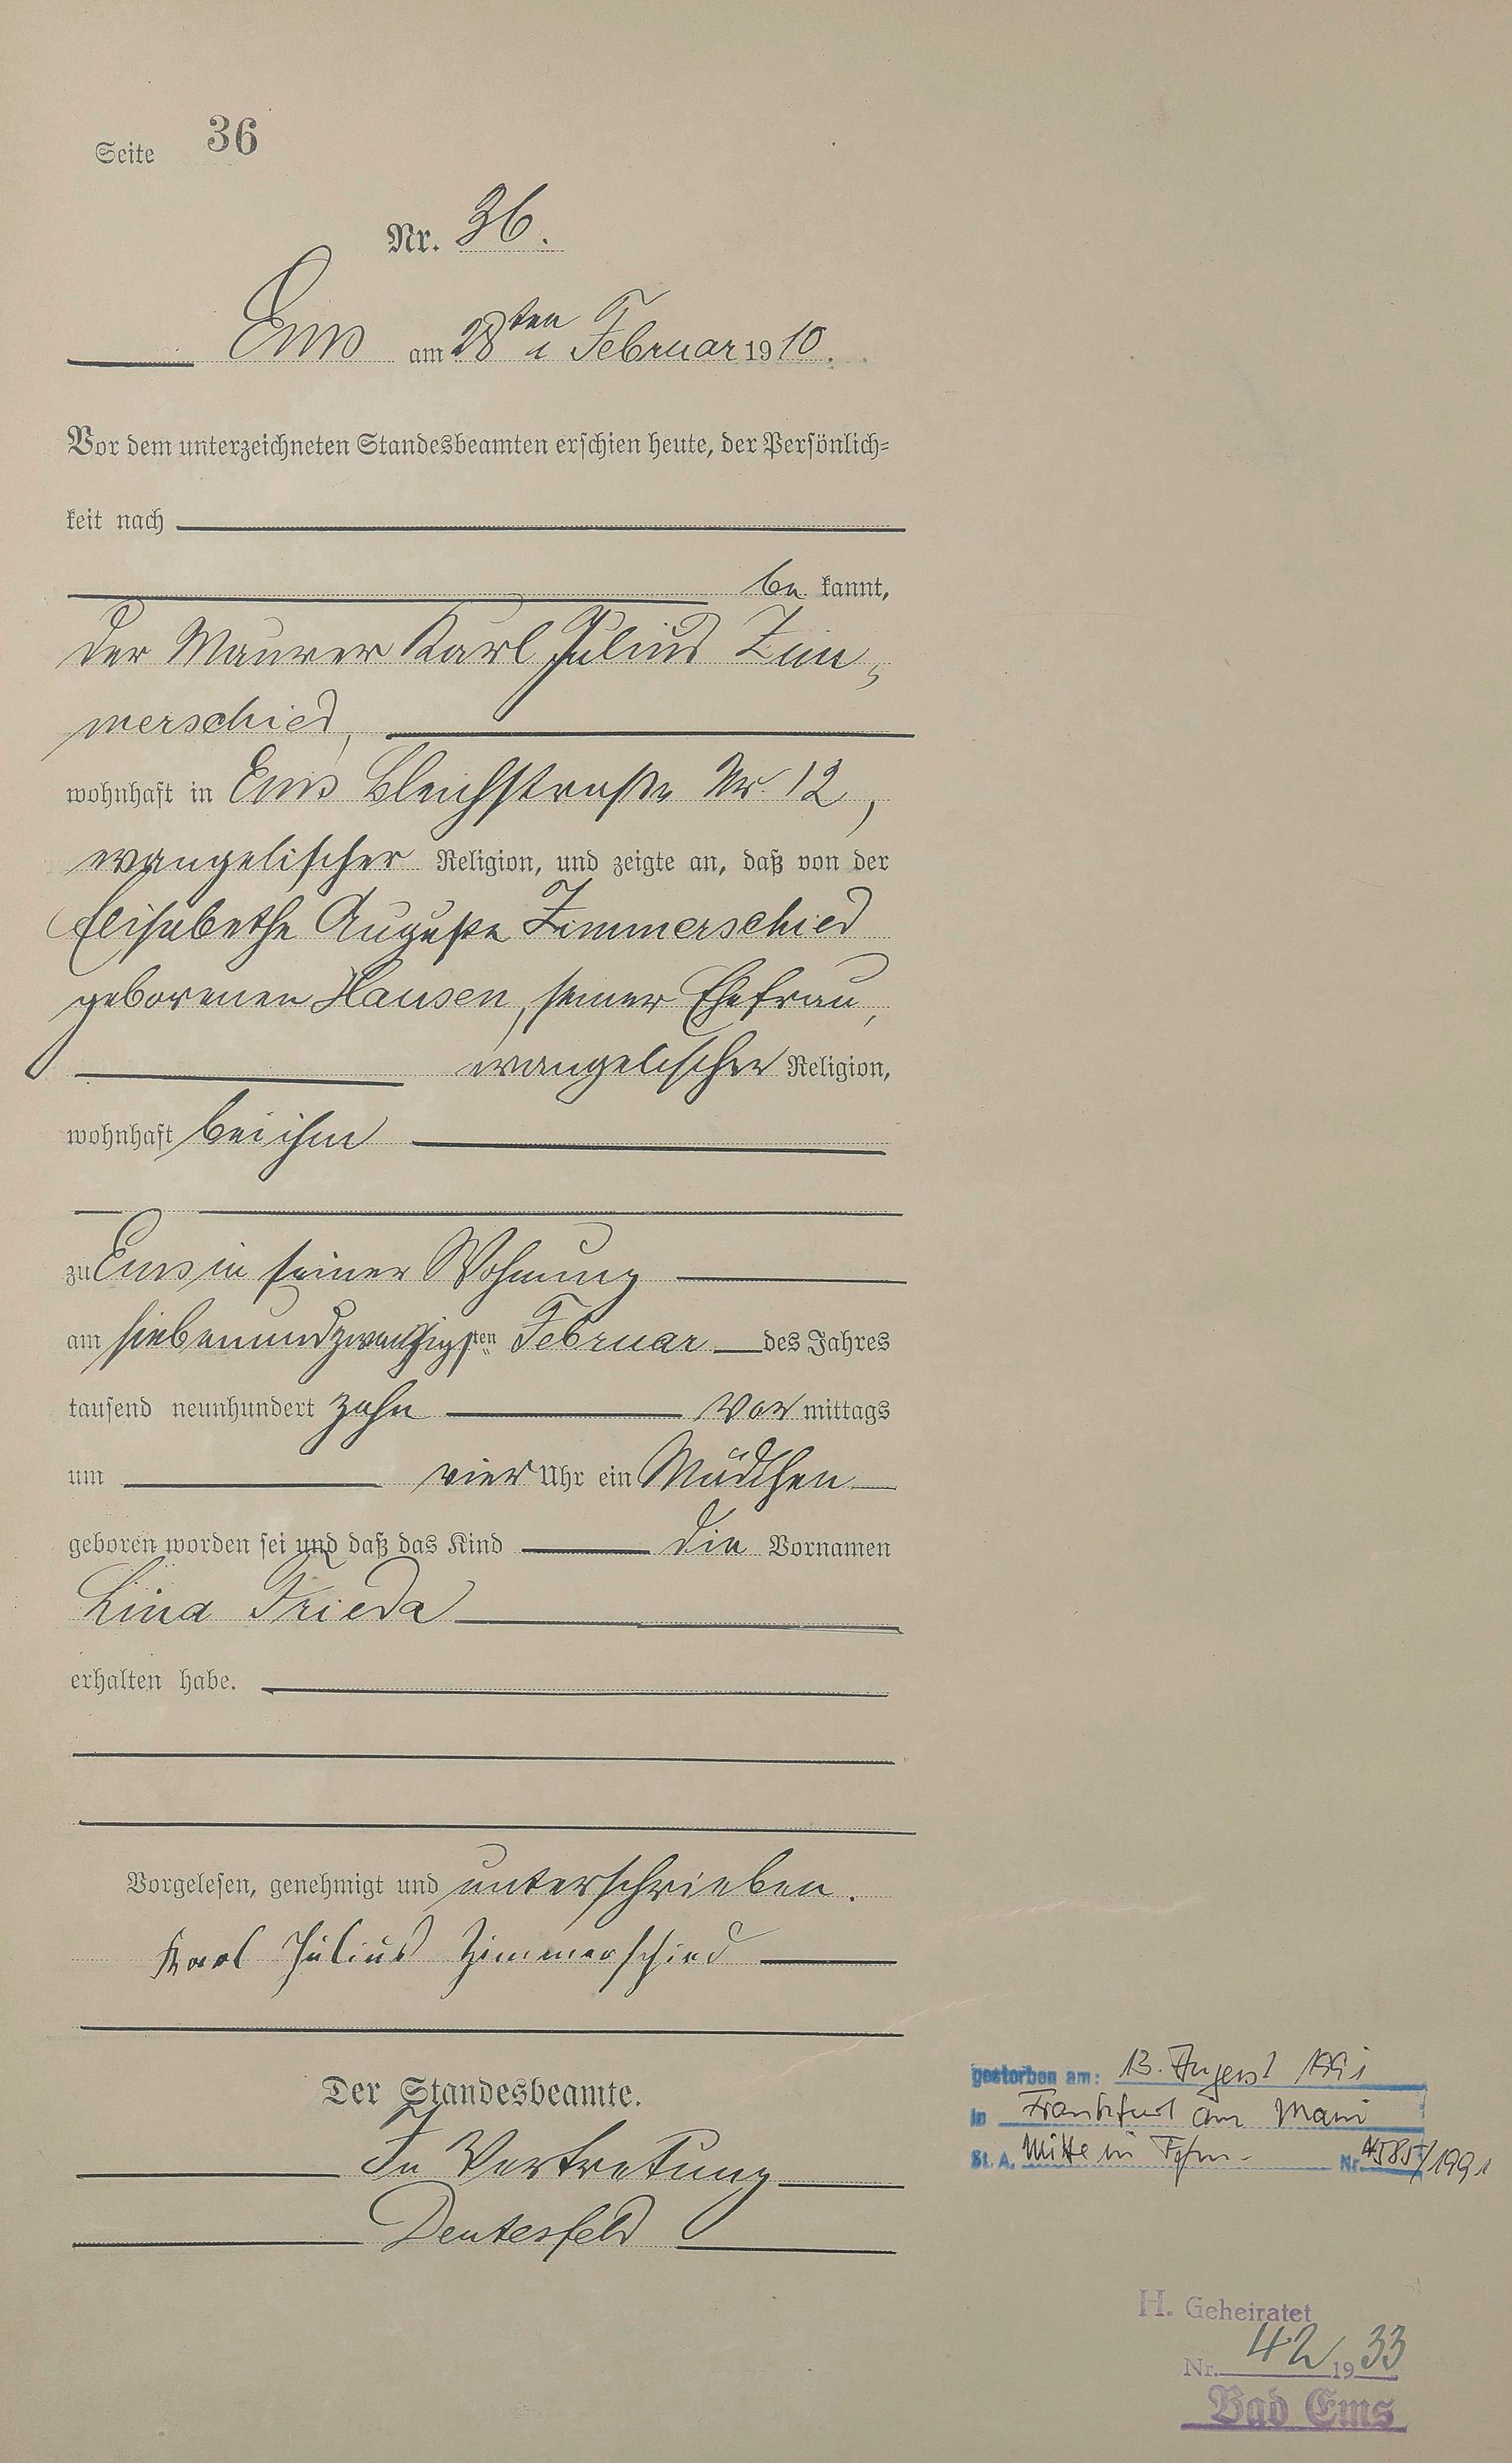 Seite 36
Nr. 36.
Ems am 28ten Februar 1910.
Vor dem unterzeichneten Standesbeamten erschien heute, der Persönlich-
keit nach
be kannt,
der Maurer Karl Julius Zim-
merschied,
wohnhaft in Ems Bleichstraße Nr. 12,
evangelischer Religion, und zeigte an, daß von der
Elisabethe Auguste Zimmerschied
geborenen Hausen, seiner Ehefrau,
evangelischer Religion,
wohnhaft bei ihm
zu Ems in seiner Wohnung
am siebenundzwanzigsten Februar des Jahres
tausend neunhundert zehn vor mittags
um vier Uhr ein Mädchen
geboren worden sei und daß das Kind die Vornamen
Lina Frieda
erhalten habe.
Vorgelesen, genehmigt und unterschrieben.
Karl Julius Zimmerschied
Der Standesbeamte.
In Vertretung
Deutesfeld
gestorben am: 13. August 1991
in Frankfurt am Main
St. A. Mitte in Ffm. Nr. 4585/1991
H. Geheiratet
Nr. 42 1933
Bad Ems